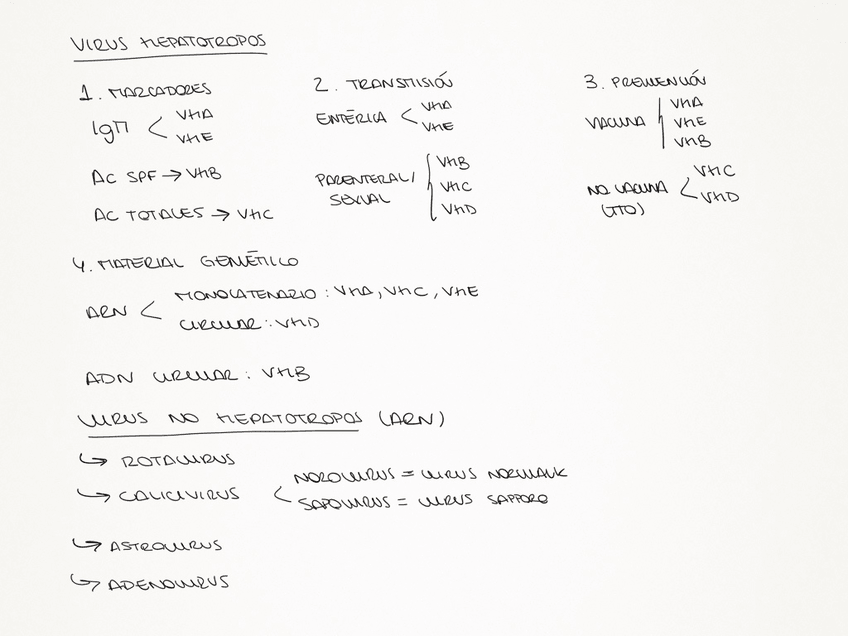 VIRUS HEPATOTROPOS
1. MARCADORES
IgM < VHA
VHE
AC SPF → VHB
AC TOTALES → VHC
2. TRANSMISIÓN
ENTÉRICA < VHA
VHE
PARENTERAL/
SEXUAL
VHB
VHC
VHD
3. PREVENCIÓN
VACUNA
VHA
VHE
VHB
NO VACUNA
(TTO)
< VHC
VHD
4. MATERIAL GENÉTICO
ARN < MONOCATENARIO : VHA, VHC, VHE
CIRCULAR : VHD
ADN CIRCULAR : VHB
VIRUS NO HEPATOTROPOS (ARN)
↳ ROTAVIRUS
↳ CALICIVIRUS
< NOROVIRUS = VIRUS NORWALK
SAPOVIRUS = VIRUS SAPPORO
↳ ASTROVIRUS
↳ ADENOVIRUS